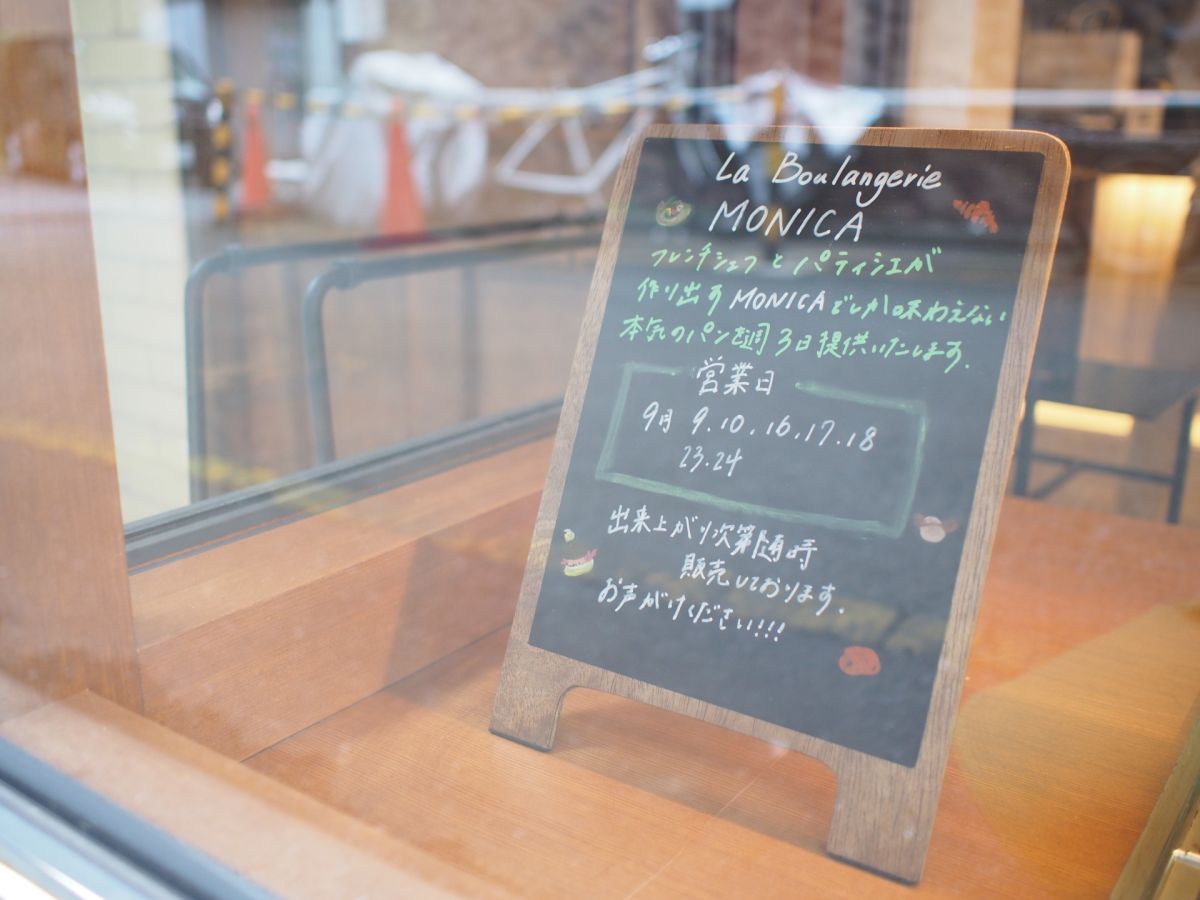 La Boulangerie
MONICA
フレンチシェフとパティシエが
作り出すMONICAでしか味わえない
本気のパンを週3日提供いたします.
営業日
9月 9.10.16.17.18
23.24
出来上がり次第随時
販売しております.
お声がけください!!!